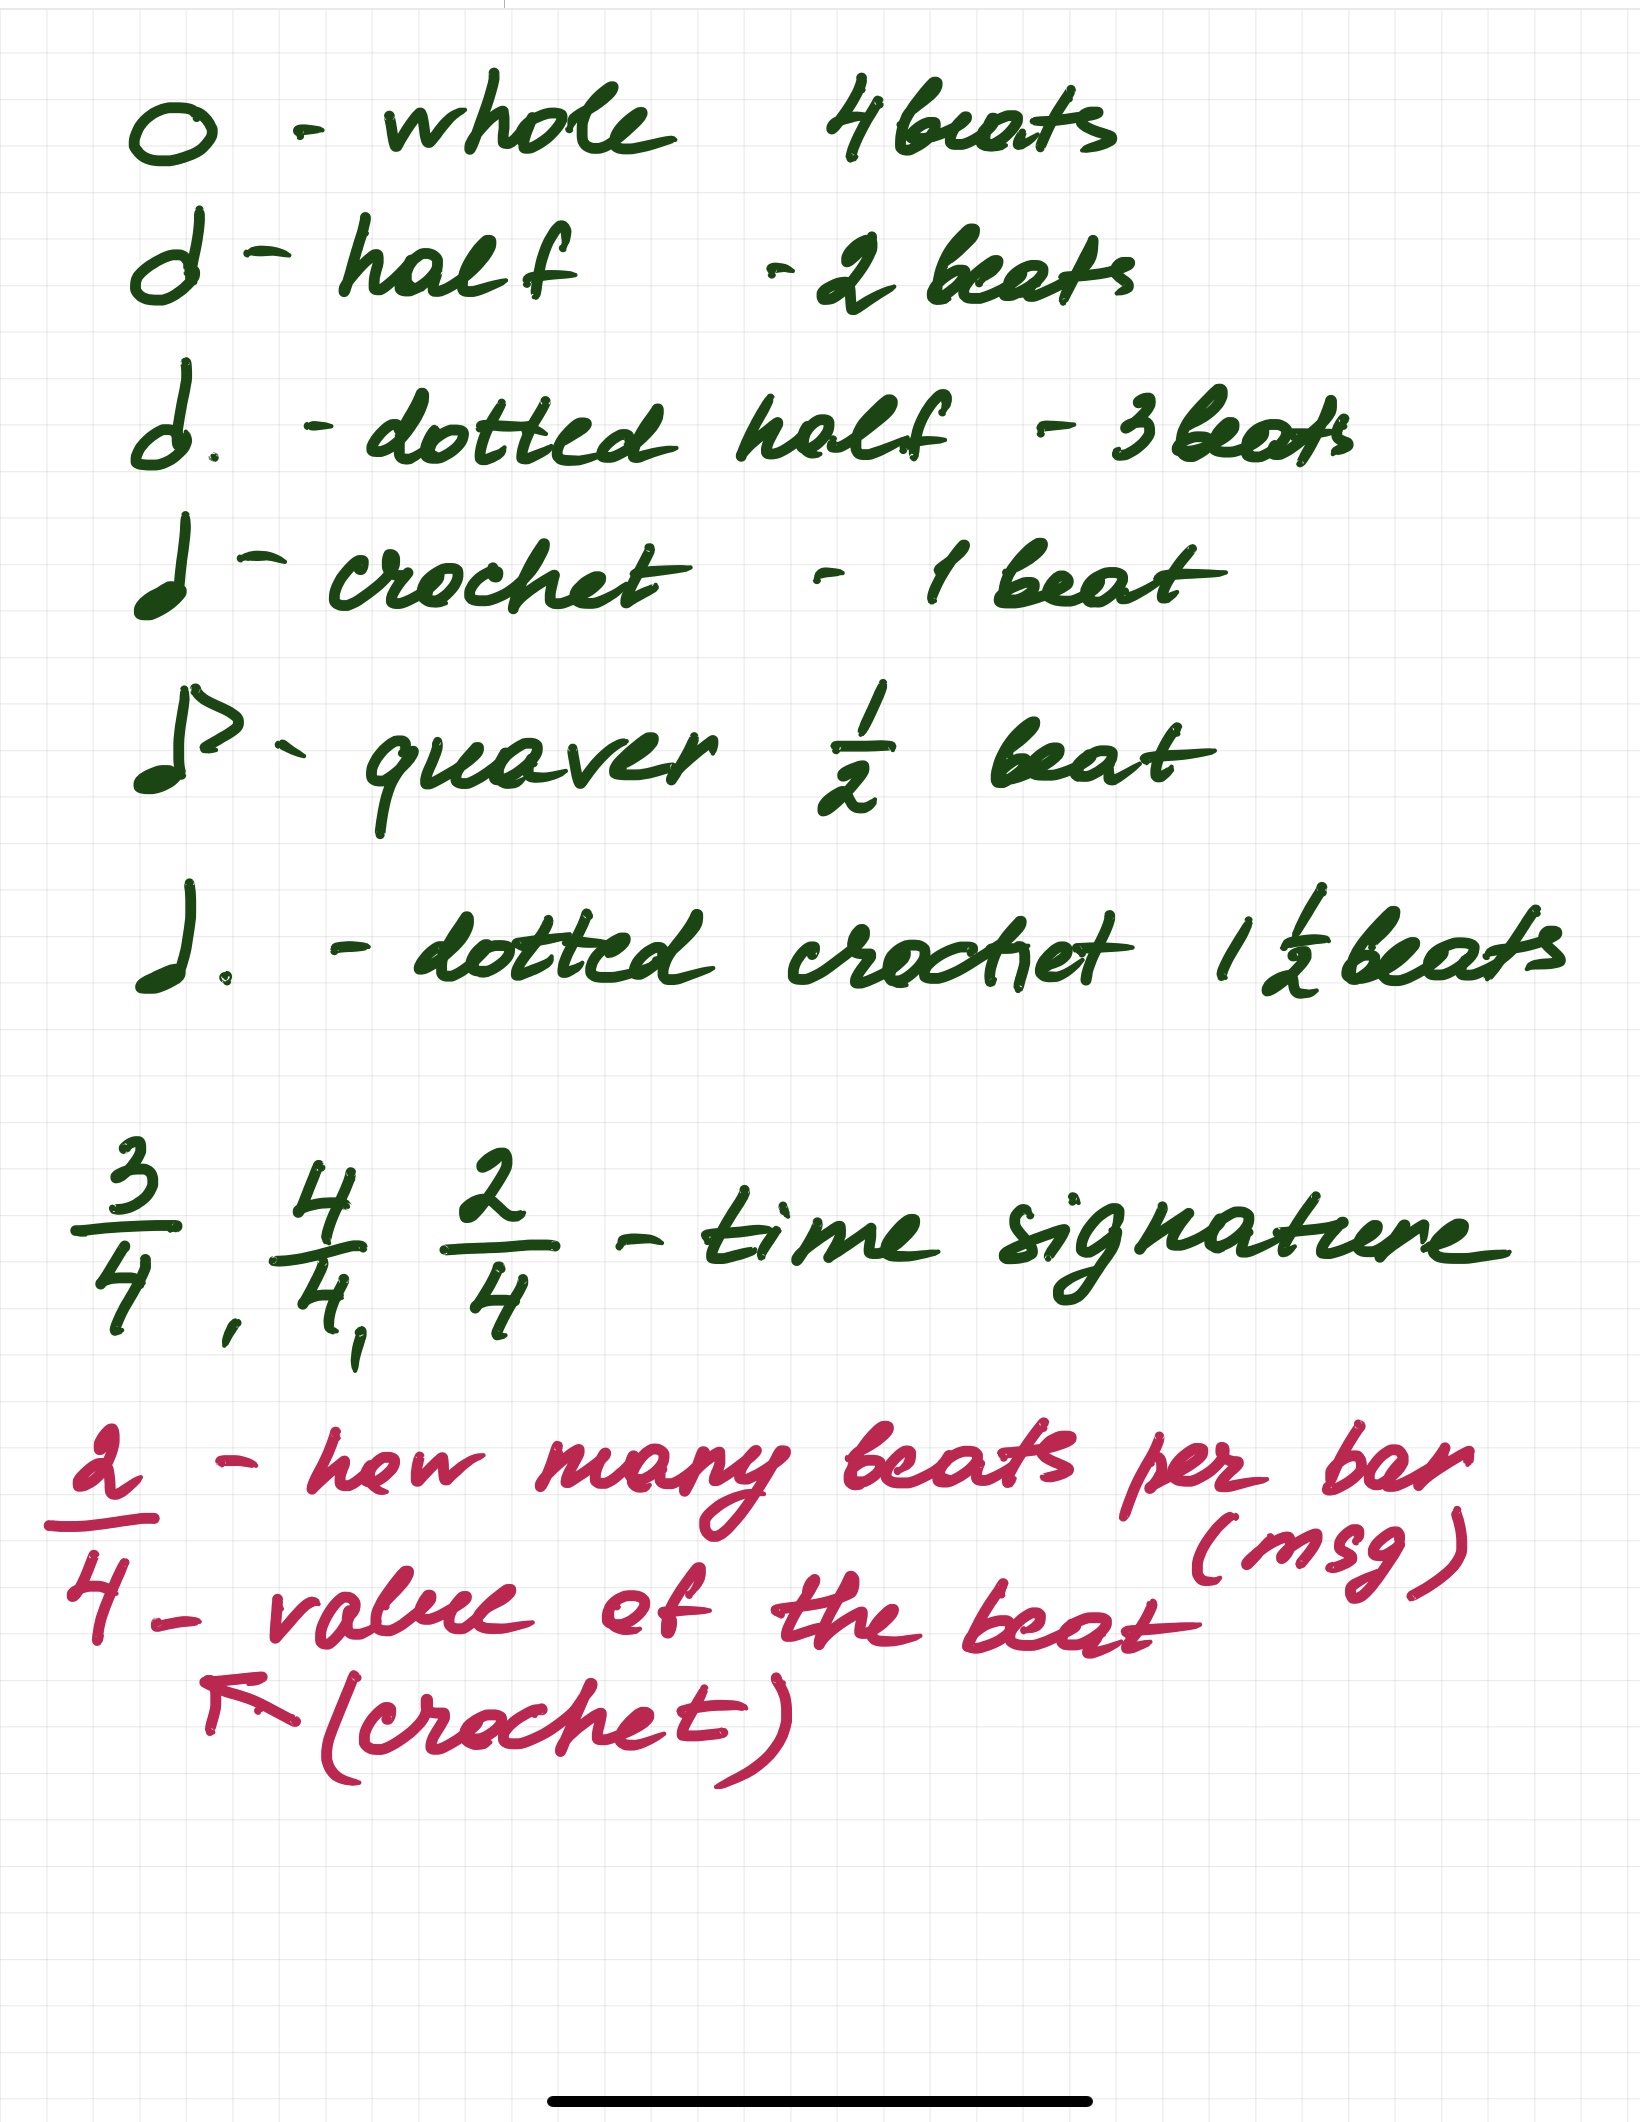 o - whole 4 beats
𝅗𝅥 - half - 2 beats
𝅗𝅥. - dotted half - 3 beats
♩ - crochet - 1 beat
♪ - quaver 1/2 beat
♩. - dotted crochet 1 1/2 beats
3/4, 4/4, 2/4 - time signature
2 - how many beats per bar
(msg)
4 - value of the beat
(crochet)